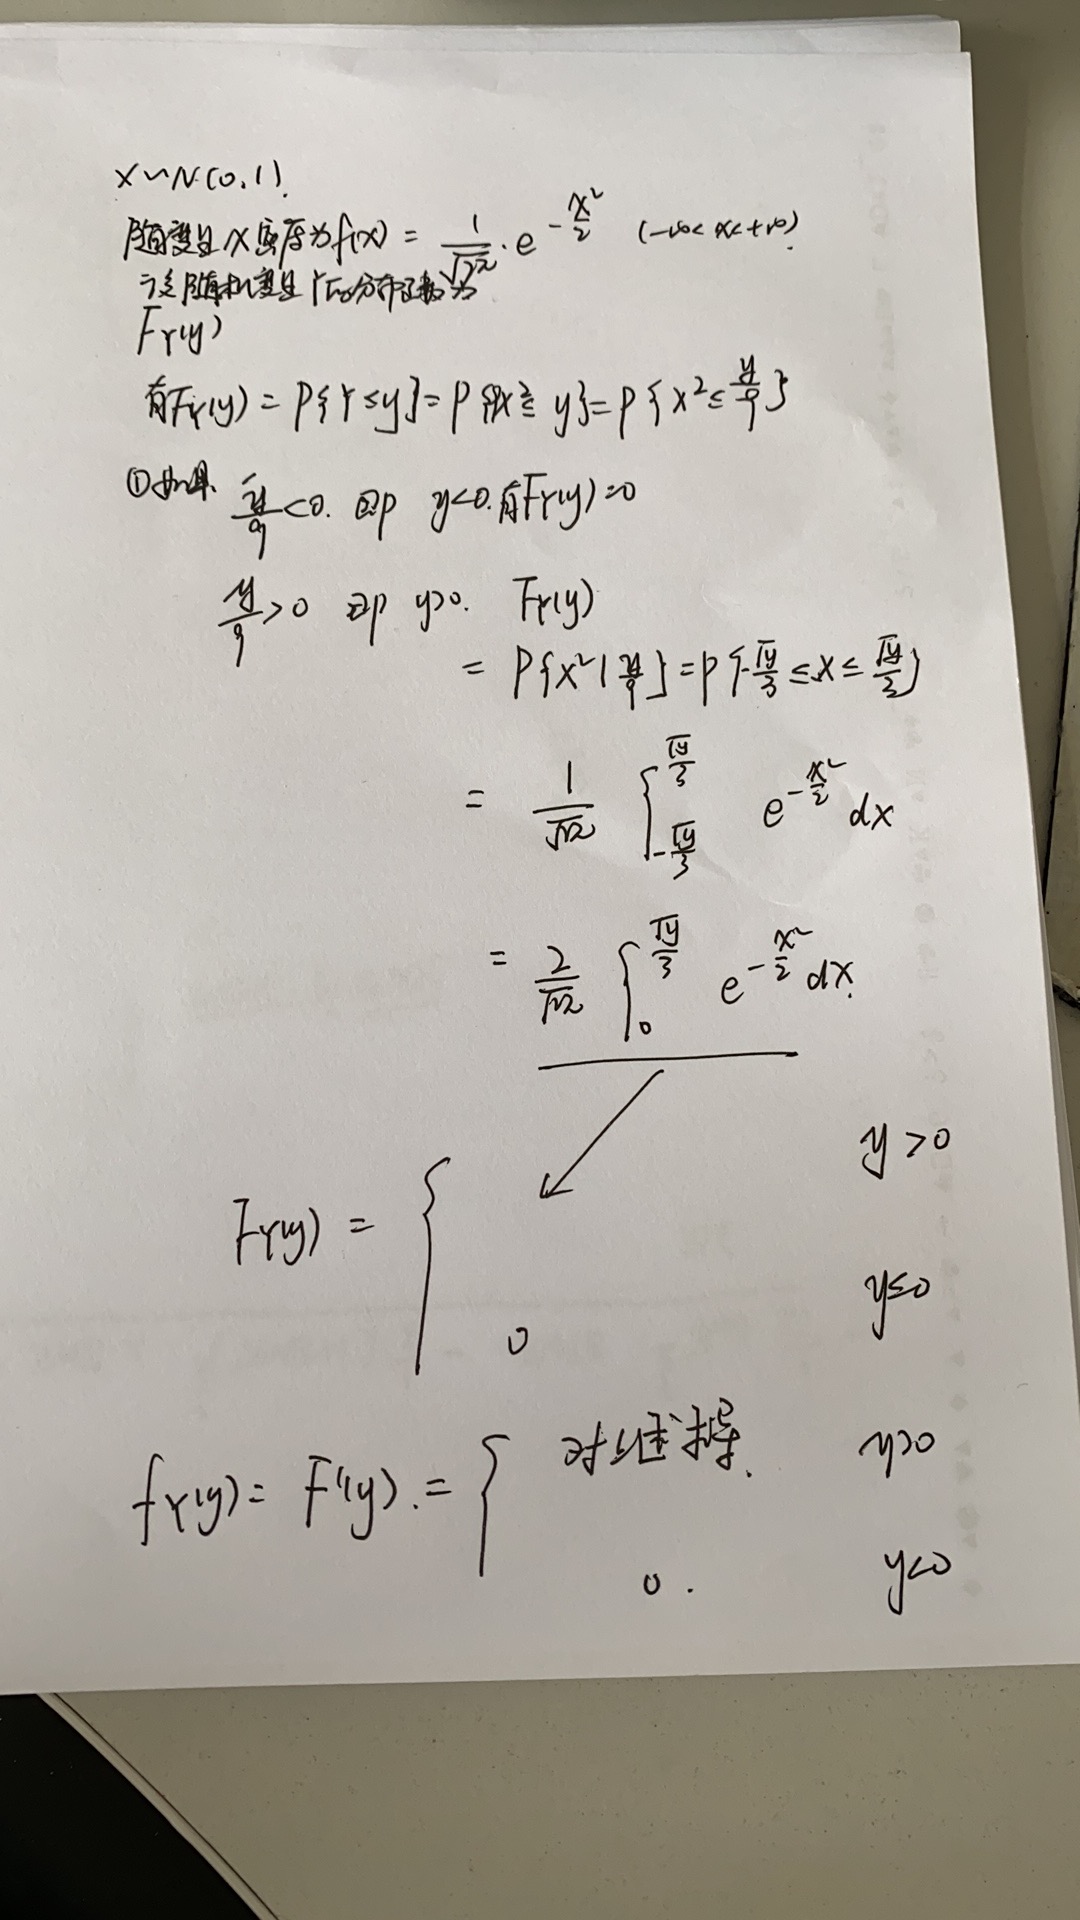 X~N(0,1).
随变量X密度为f(x) = 1/√2π · e^(-x²/2) (-∞<x<+∞).
设随机变量Y的分布函数为
F_Y(y)
有F_Y(y) = P{Y≤y} = P{9X²≤y} = P{X²≤y/9}
①如果 y/9<0. 即 y<0. 有F_Y(y)=0
y/9>0 即 y>0. F_Y(y)
= P{X² y/9} = P{-√y/3 ≤ X ≤ √y/3}
= 1/√2π ∫_{-√y/3}^{√y/3} e^(-x²/2) dx
= 2/√2π ∫_0^{√y/3} e^(-x²/2) dx.
y>0
F_Y(y) = {
0 y≤0
对上述求导. y>0
f_Y(y) = F'(y). = {
0. y<0